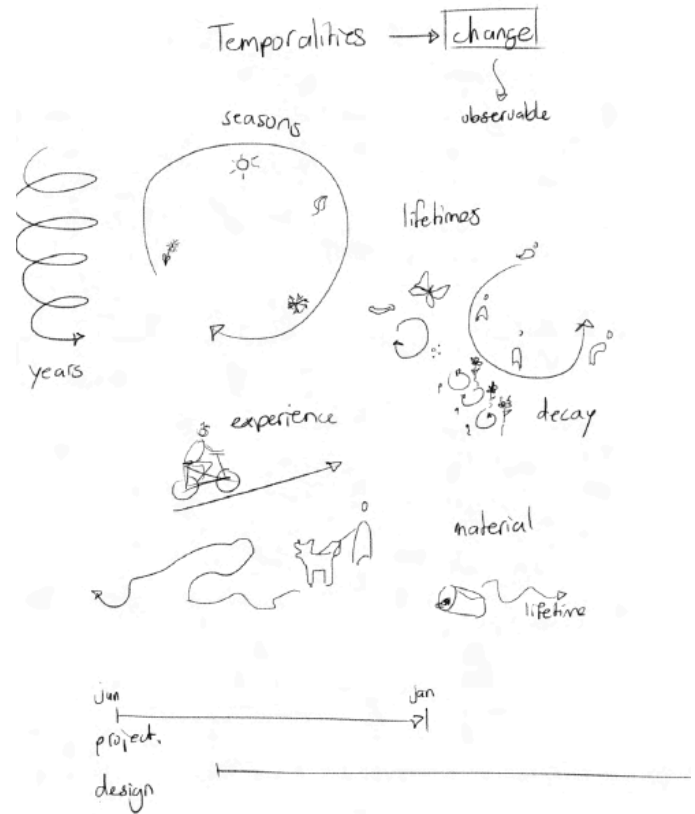 Temporalities → change
observable
seasons
lifetimes
years
decay
experience
material
lifetime
jun
jan
project.
design